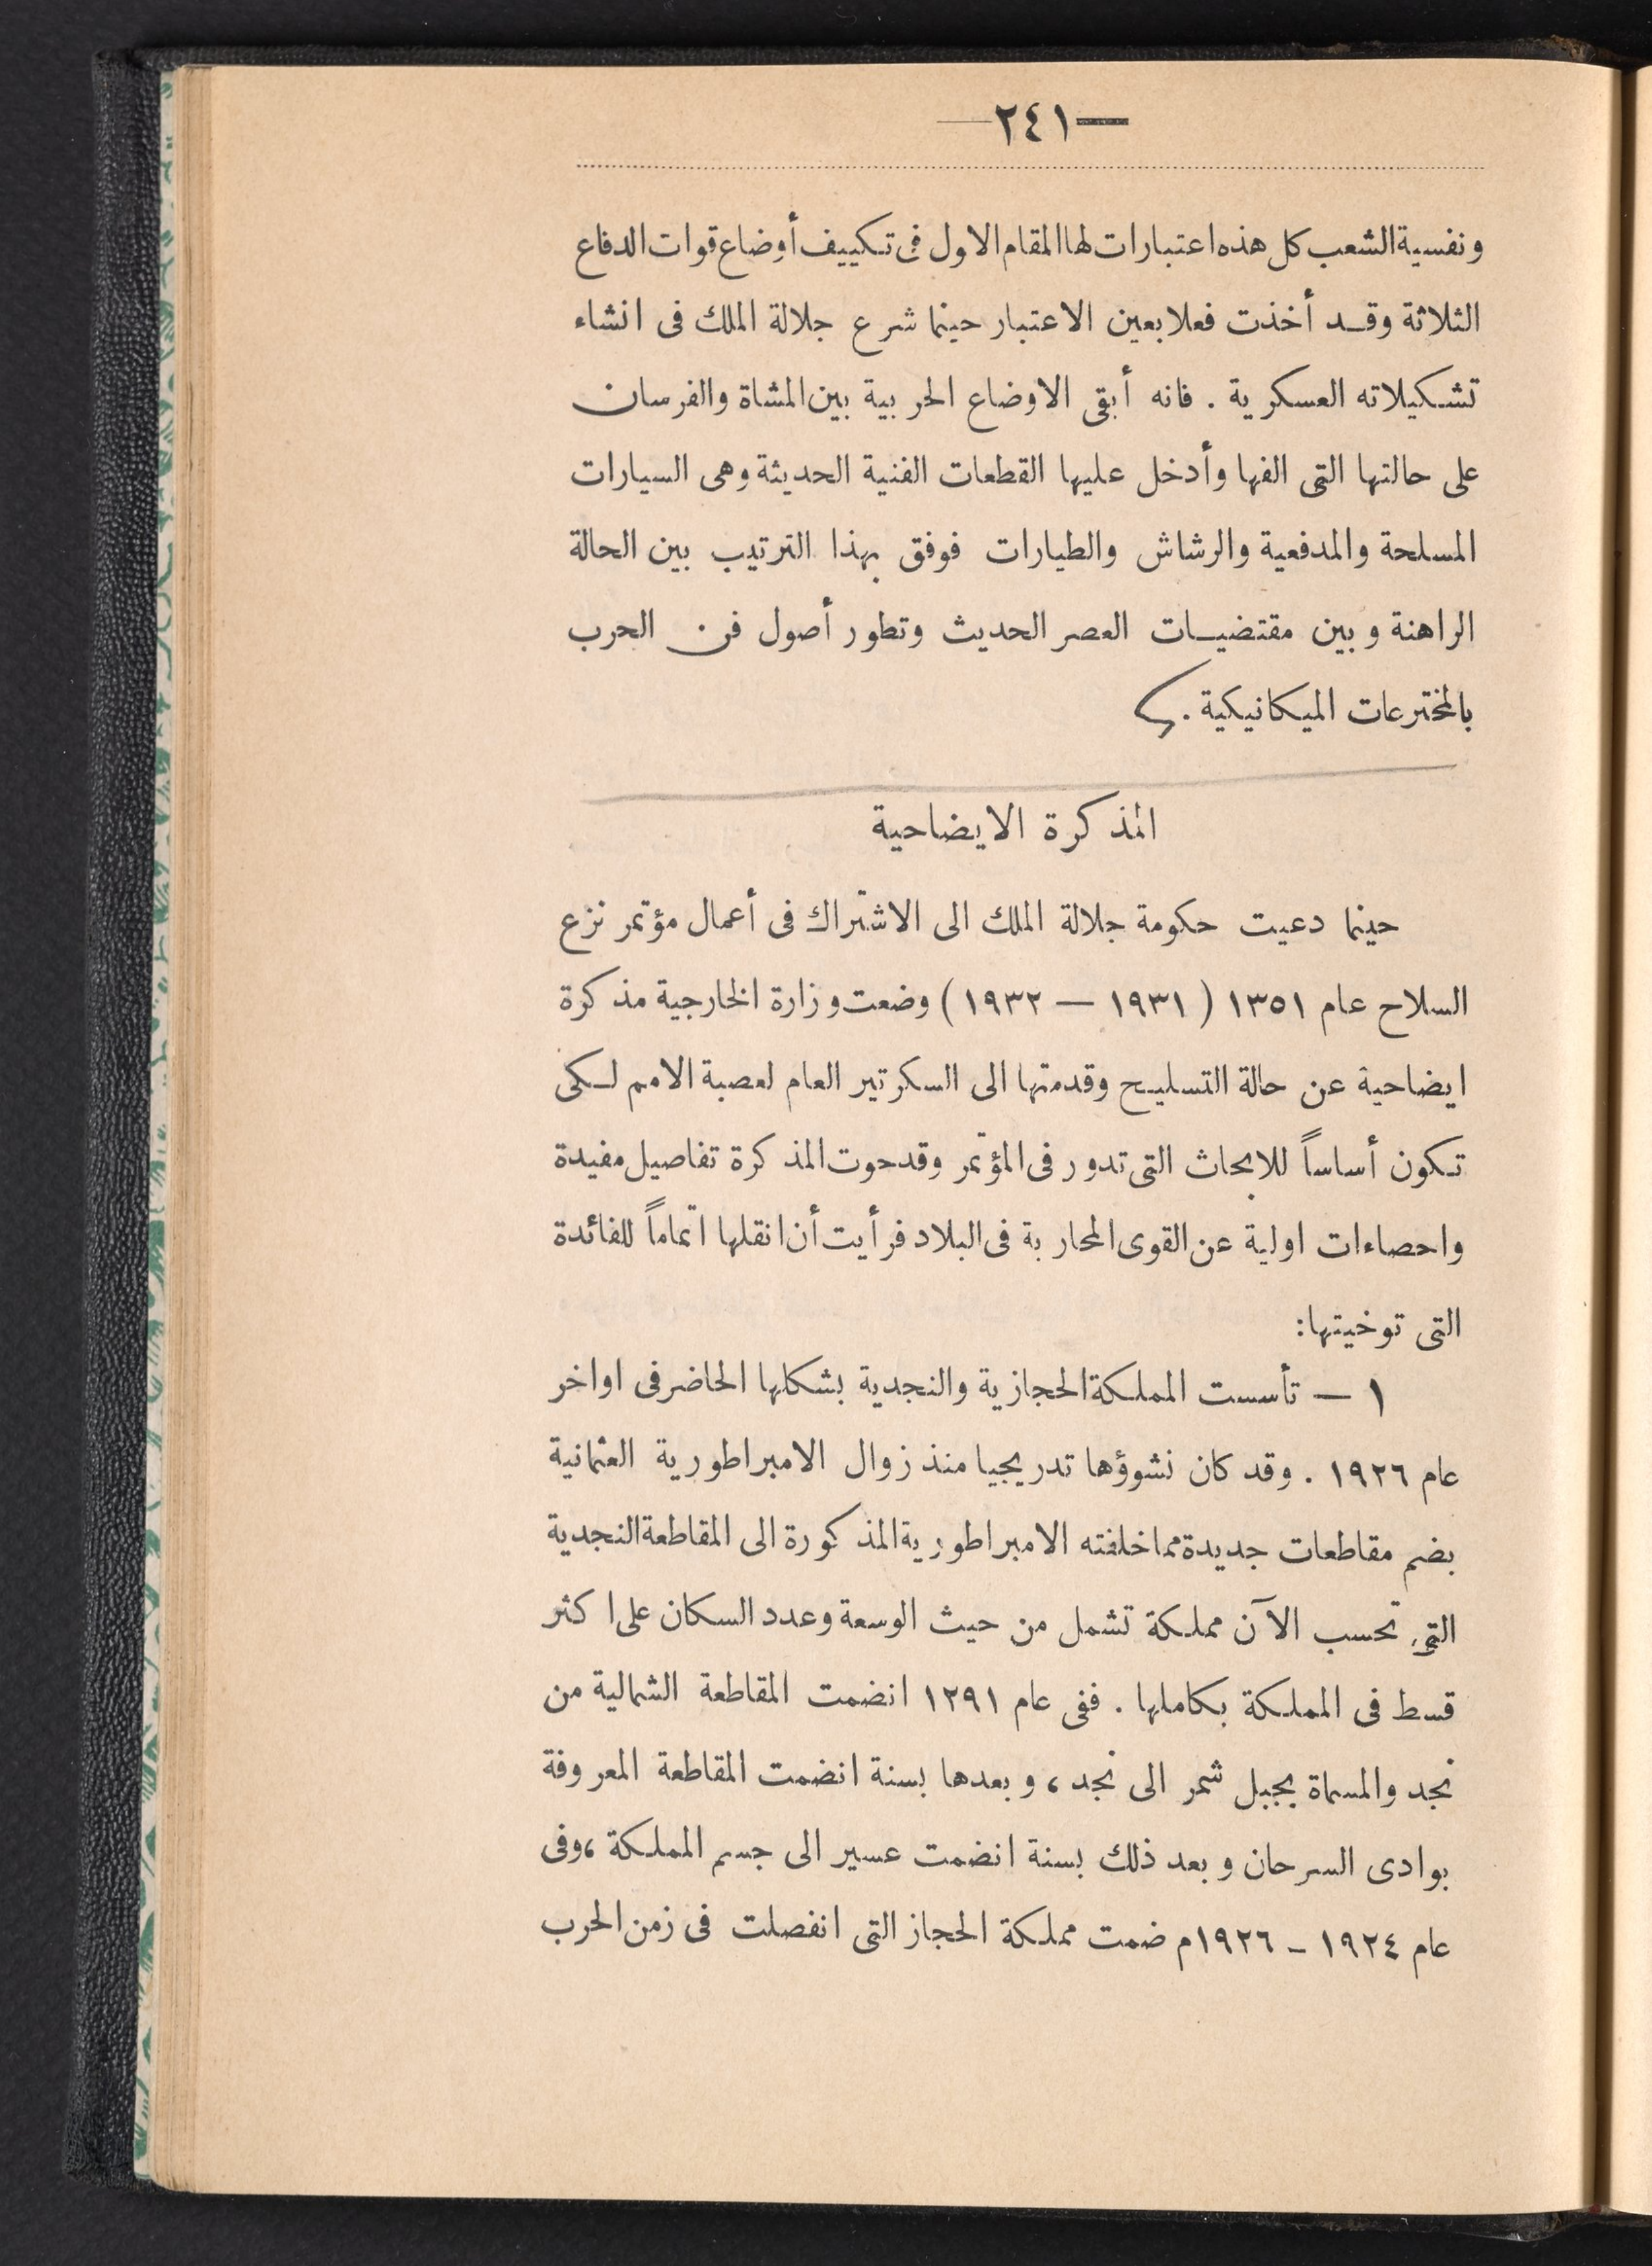 —٢٤١—
ونفسية الشعب كل هذه اعتبارات لها المقام الاول فى تكييف أوضاع قوات الدفاع
الثلاثة وقد أخذت فعلا بعين الاعتبار حينما شرع جلالة الملك فى انشاء
تشكيلاته العسكرية . فانه أبقى الاوضاع الحربية بين المشاة والفرسان
على حالتها التى الفها وأدخل عليها القطعات الفنية الحديثة وهى السيارات
المسلحة والمدفعية والرشاش والطيارات فوفق بهذا الترتيب بين الحالة
الراهنة وبين مقتضيات العصر الحديث وتطور أصول فن الحرب
بالمخترعات الميكانيكية .
المذكرة الايضاحية
حينما دعيت حكومة جلالة الملك الى الاشتراك فى أعمال مؤتمر نزع
السلاح عام ١٣٥١ ( ١٩٣١ — ١٩٣٢ ) وضعت وزارة الخارجية مذكرة
ايضاحية عن حالة التسليح وقدمتها الى السكرتير العام لعصبة الامم لكى
تكون أساساً للابحاث التى تدور فى المؤتمر وقد حوت المذكرة تفاصيل مفيدة
واحصاءات اولية عن القوى المحاربة فى البلاد فرأيت أن انقلها اتماماً للفائدة
التى توخيتها:
١ — تأسست المملكة الحجازية والنجدية بشكلها الحاضر فى اواخر
عام ١٩٢٦ . وقد كان نشوؤها تدريجيا منذ زوال الامبراطورية العثمانية
بضم مقاطعات جديدة مما خلفته الامبراطورية المذكورة الى المقاطعة النجدية
التى تحسب الآن مملكة تشمل من حيث الوسعة وعدد السكان على اكثر
قسط فى المملكة بكاملها . ففى عام ١٢٩١ انضمت المقاطعة الشمالية من
نجد والمسماة بجبل شمر الى نجد ، وبعدها بسنة انضمت المقاطعة المعروفة
بوادى السرحان وبعد ذلك بسنة انضمت عسير الى جسم المملكة ، وفى
عام ١٩٢٤ - ١٩٢٦م ضمت مملكة الحجاز التى انفصلت فى زمن الحرب